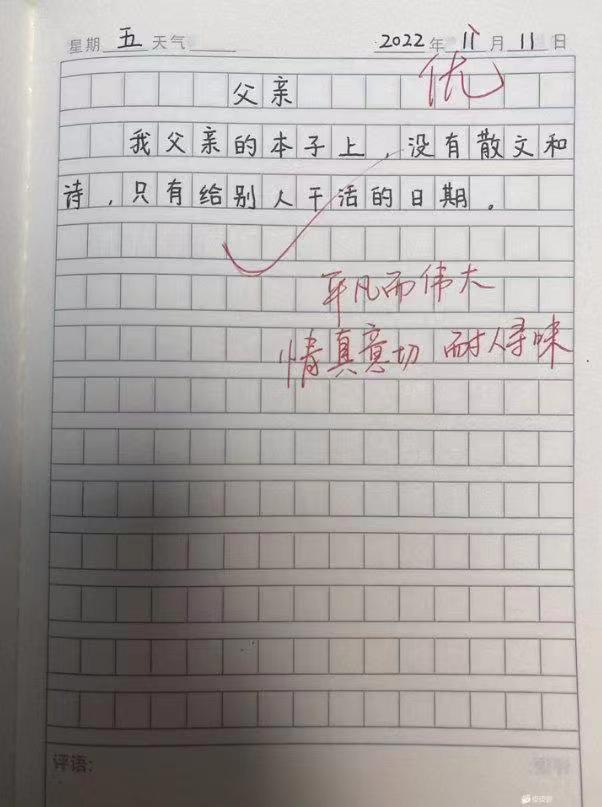 星期 五 天气 2022 年 11 月 11 日
优
父亲
我父亲的本子上，没有散文和
诗，只有给别人干活的日期。
平凡而伟大
情真意切 耐人寻味
评语: